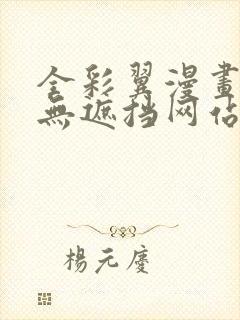 全彩翼漫畫
無遮挡网站
楊元慶